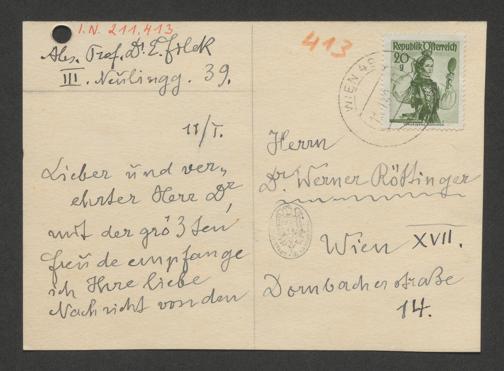 I.N. 211.413
Abs. Prof. Dr. E.
III. Neulingg. 39.
11/I.
Lieber und ver-
ehrter Herr Dr,
mit der größten
freude empfange
ich Ihre liebe
Nachricht von den
413
WIEN
Republik Österreich
20
g
Herrn
Dr. Werner Röttinger
Wien XVII.
Dornbacherstraße
14.